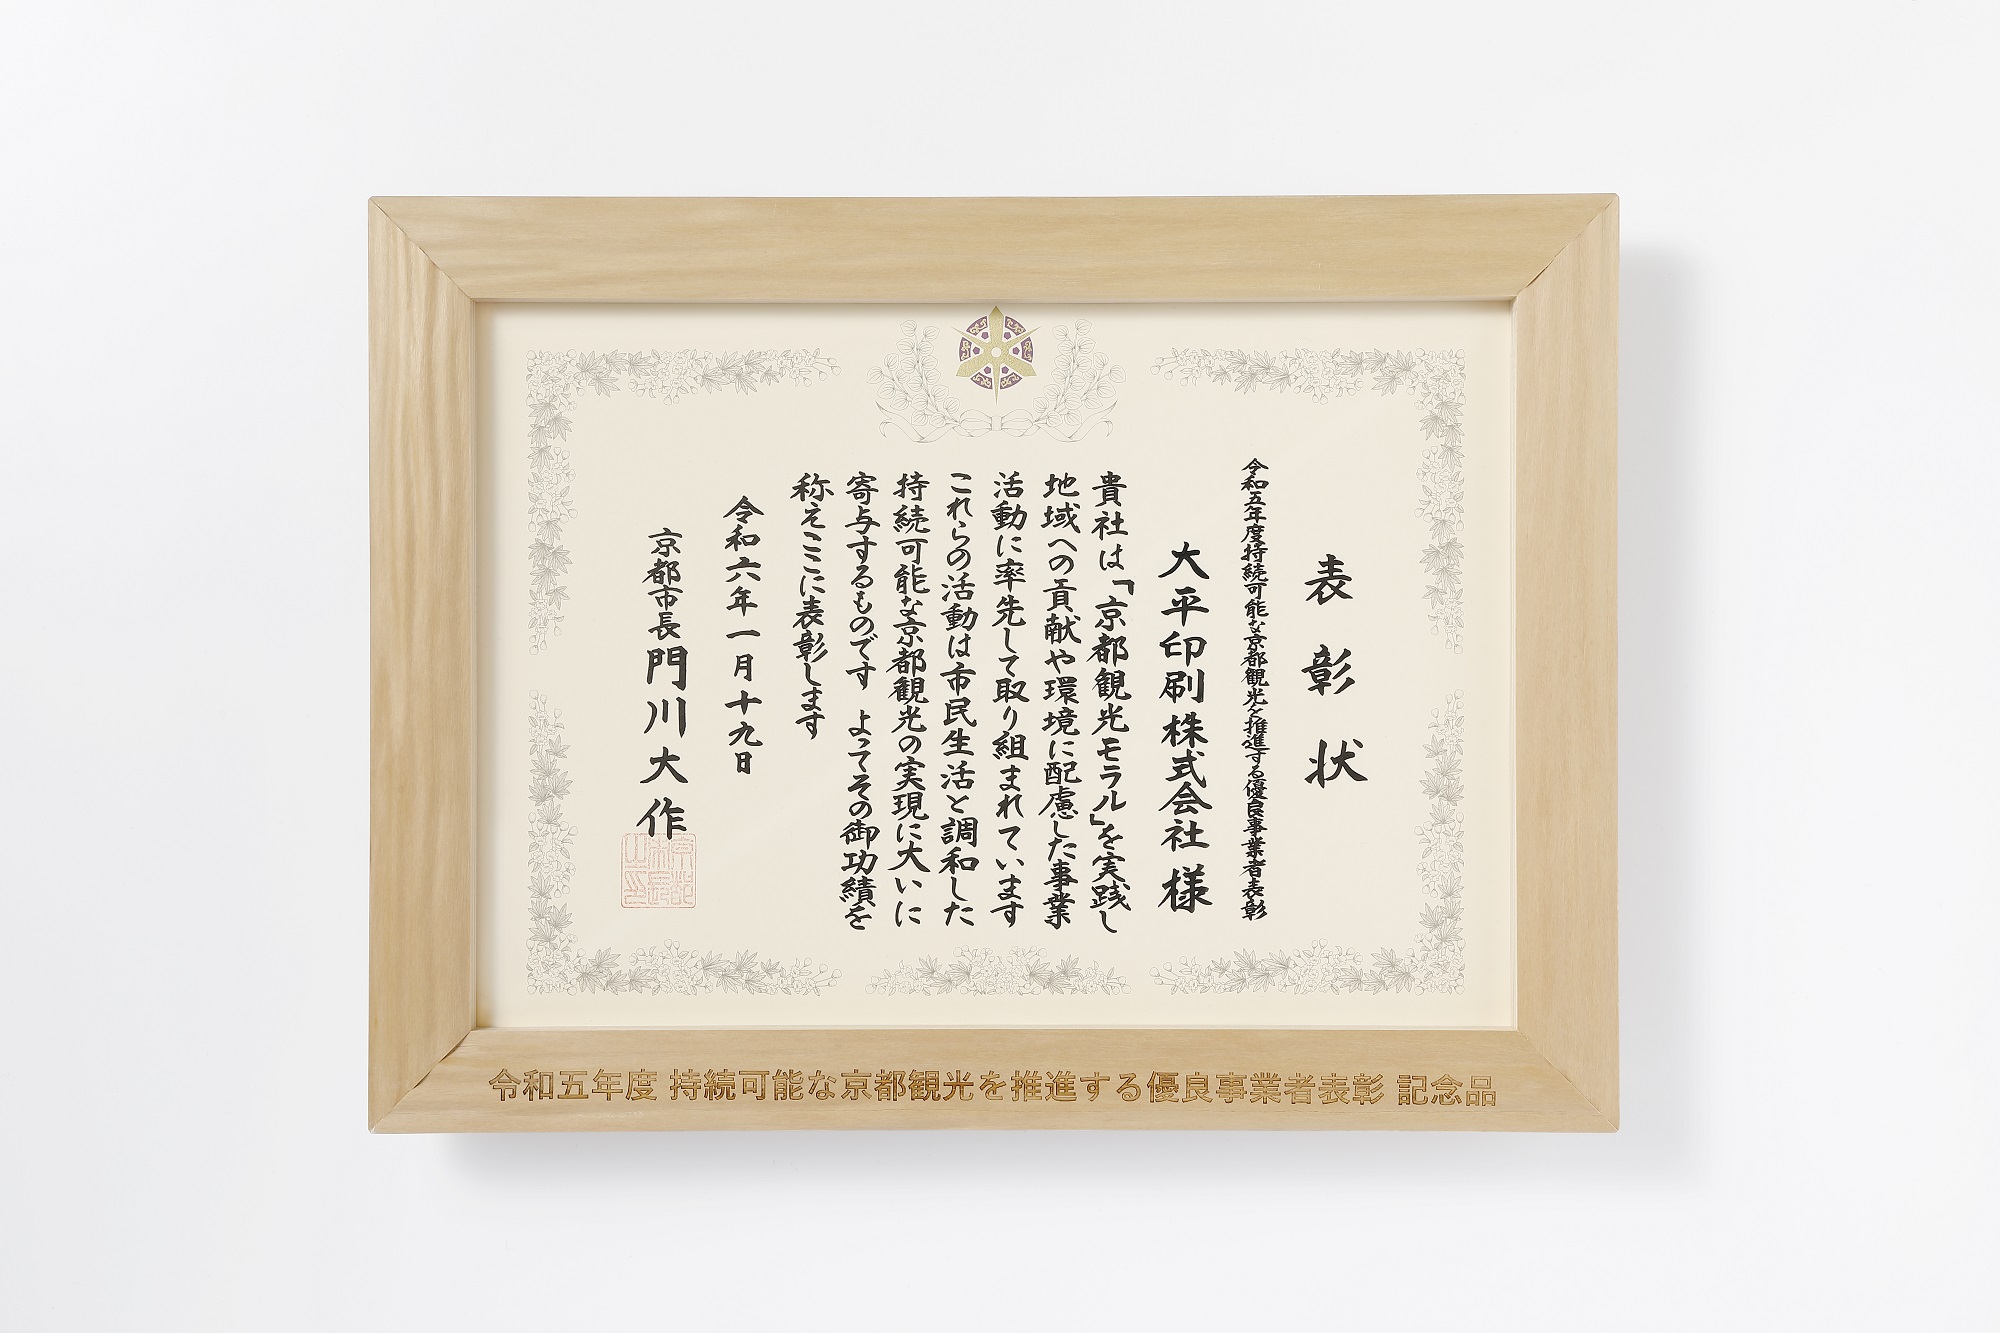 表彰状
令和五年度持続可能な京都観光を推進する優良事業者表彰
大平印刷株式会社 様
貴社は「京都観光モラル」を実践し
地域への貢献や環境に配慮した事業
活動に率先して取り組まれています
これらの活動は市民生活と調和した
持続可能な京都観光の実現に大いに
寄与するものです よってその御功績を
称えここに表彰します
令和六年一月十九日
京都市長 門川大作
令和五年度 持続可能な京都観光を推進する優良事業者表彰 記念品